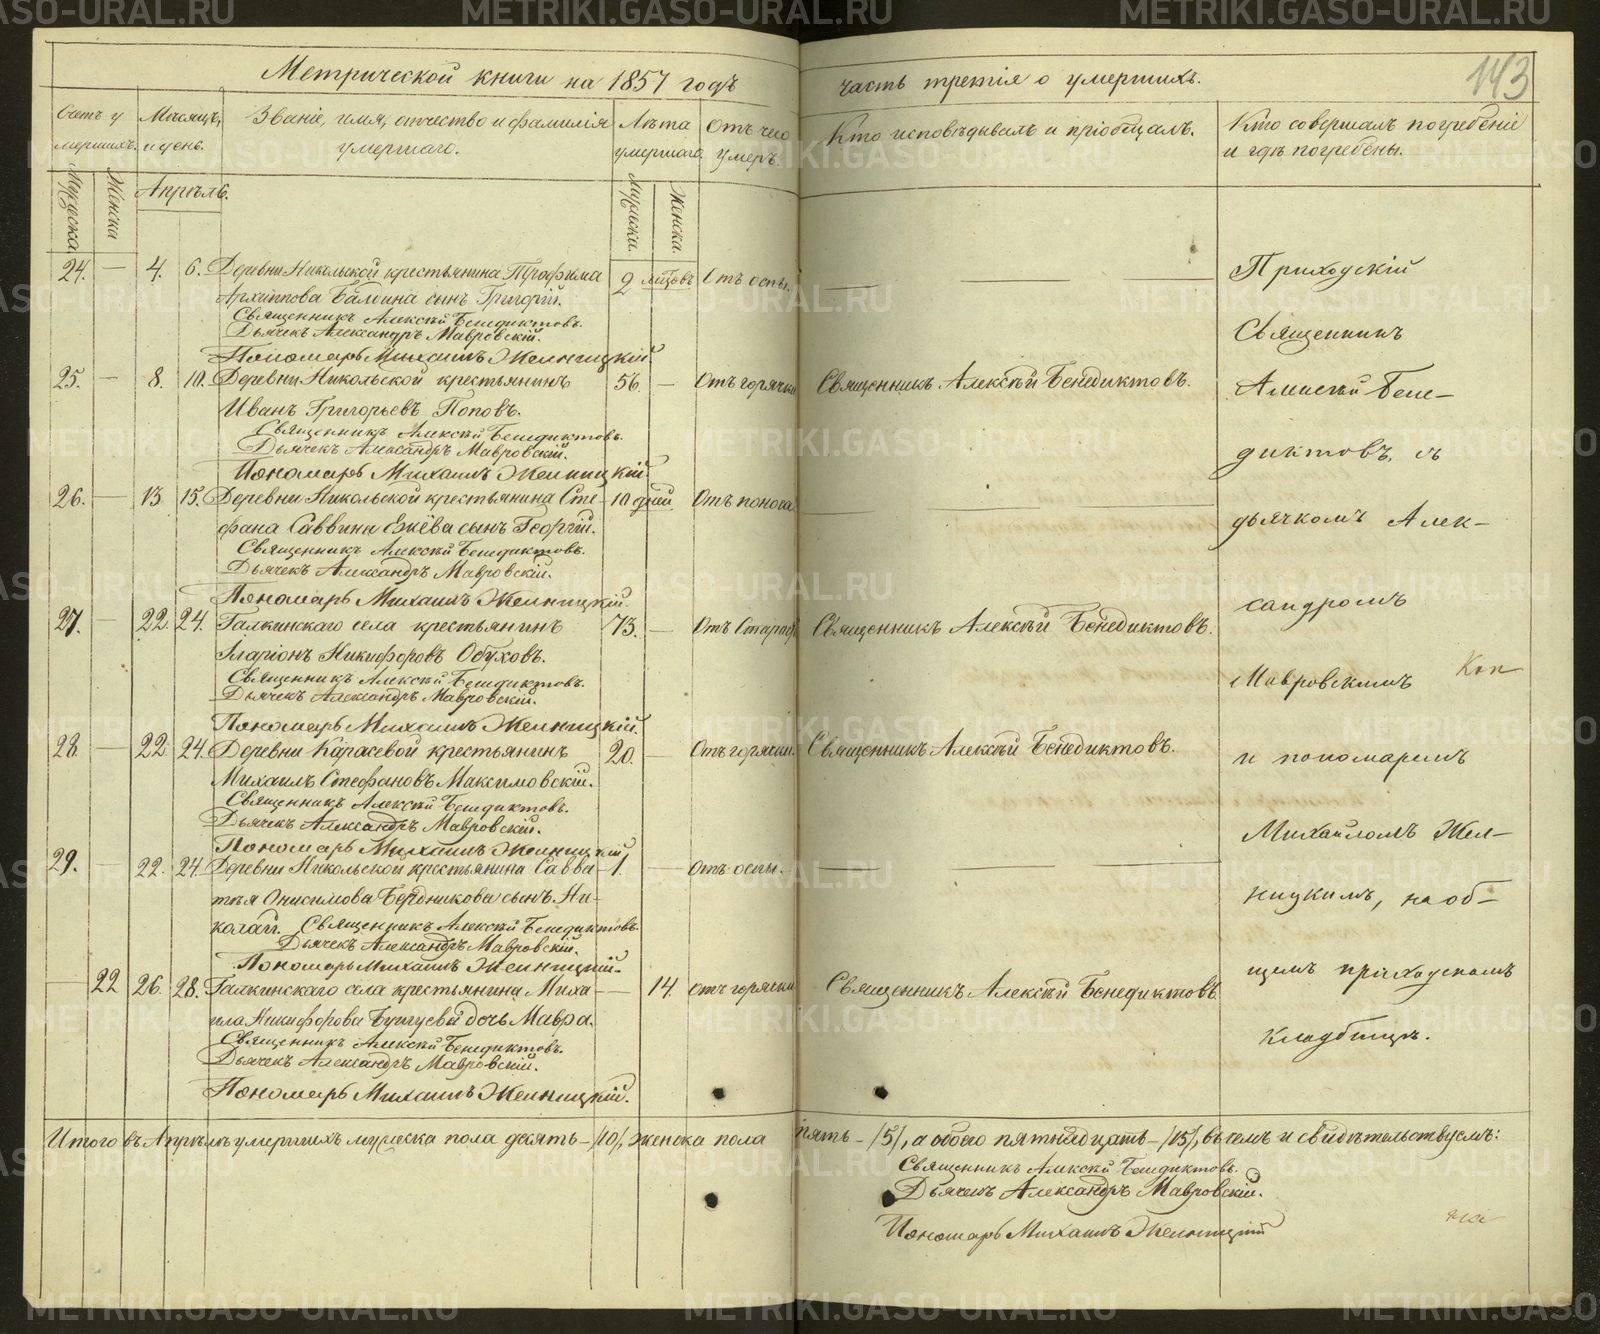 Метрической книги на 1857 годъ
часть третія о умершихъ.
143
Счетъ умершихъ.
Мѣсяцъ и день.
Званіе, имя, отчество и фамилія умершаго.
Лѣта умершаго.
Отъ чего умеръ.
Кто исповѣдывалъ и пріобщалъ.
Кто совершалъ погребеніе и гдѣ погребены.
Мужеска
Женска
Апрѣль.
Мужеска.
Женска.
24. — 4. 6. Деревни Никольской крестьянина Трофима 2 мѣсяцовъ Отъ оспы. — —
Архиппова Балдина сынъ Григорій.
Священникъ Алексѣй Бенедиктовъ.
Дьячекъ Александръ Мавровскій.
Пономарь Михаилъ Желницкій
25. — 8. 10. Деревни Никольской крестьянинъ 56. — Отъ горячки Священникъ Алексѣй Бенедиктовъ.
Иванъ Григорьевъ Поповъ.
Священникъ Алексѣй Бенедиктовъ.
Дьячекъ Александръ Мавровскій.
Пономарь Михаилъ Желницкій
26. — 13. 15. Деревни Никольской крестьянина Сте- 10 дней Отъ поноса — —
фана Саввина сынъ Георгій.
Священникъ Алексѣй Бенедиктовъ.
Дьячекъ Александръ Мавровскій.
Пономарь Михаилъ Желницкій.
27. — 22. 24. Галкинскаго села крестьянинъ 73. — Отъ Старос. Священникъ Алексѣй Бенедиктовъ.
Иларіонъ Никифоровъ Обуховъ.
Священникъ Алексѣй Бенедиктовъ.
Дьячекъ Александръ Мавровскій.
Пономарь Михаилъ Желницкій.
28. — 22. 24. Деревни Карасевой крестьянинъ 20. — Отъ горячки. Священникъ Алексѣй Бенедиктовъ.
Михаилъ Стефановъ Максимовскій.
Священникъ Алексѣй Бенедиктовъ.
Дьячекъ Александръ Мавровскій.
Пономарь Михаилъ Желницкій
29. — 22. 24. Деревни Никольской крестьянина Савва- 1. — Отъ оспы. — —
тѣя Онисимова Бердникова сынъ Ни-
колай. Священникъ Алексѣй Бенедиктовъ.
Дьячекъ Александръ Мавровскій.
Пономарь Михаилъ Желницкій.
— 22 26. 28. Галкинскаго села крестьянина Миха- — 14. Отъ горячки Священникъ Алексѣй Бенедиктовъ
ила Никифорова дочь Мавра.
Священникъ Алексѣй Бенедиктовъ.
Дьячекъ Александръ Мавровскій.
Пономарь Михаилъ Желницкій.
Приходскій
Священникъ
Алексѣй Бене-
диктовъ, съ
дьячкомъ Алек-
сандромъ
Мавровскимъ
и пономаремъ
Михайломъ Жел-
ницкимъ, на об-
щемъ приходскомъ
кладбищѣ.
Итого въ Апрѣлѣ умершихъ мужеска пола десять — /10/, женска пола пять — /5/, а обоего пятнадцать — /15/, въ чемъ и свидѣтельствуемъ:
Священникъ Алексѣй Бенедиктовъ.
Дьячекъ Александръ Мавровскій.
Пономарь Михаилъ Желницкій
METRIKI.GASO-URAL.RU